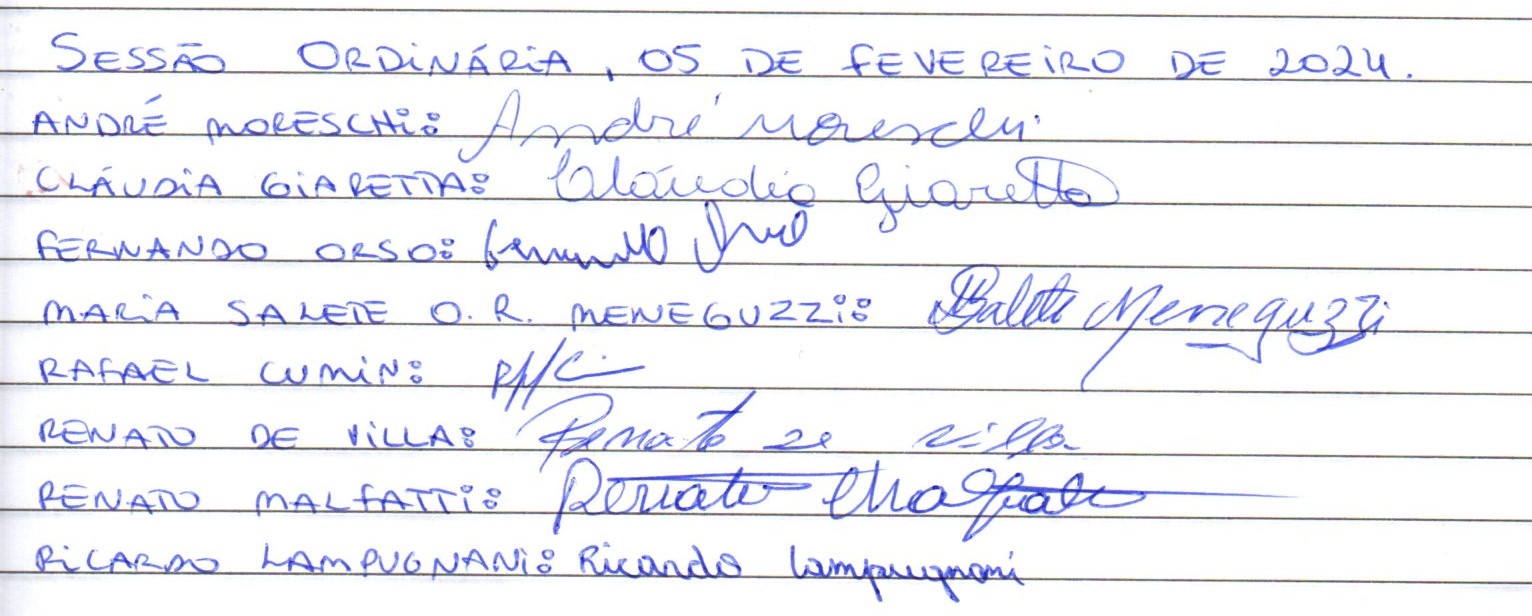 SESSÃO ORDINÁRIA, 05 DE FEVEREIRO DE 2024.
ANDRÉ MORESCHI: André Moreschi
CLÁUDIA GIARETTA: Cláudia Giaretta
FERNANDO ORSO:
MARIA SALETE O. R. MENEGUZZI: MSalete Meneguzzi
RAFAEL CUMIN:
RENATO DE VILLA: Renato de Villa
RENATO MALFATTI: Renato Malfatti
RICARDO LAMPUGNANI: Ricardo Lampugnani